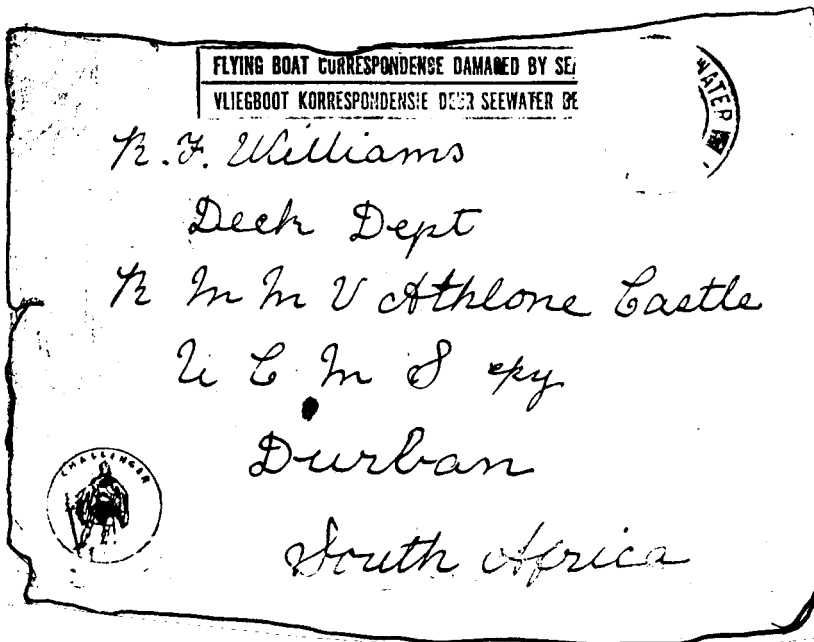 FLYING BOAT CORRESPONDENSE DAMAGED BY SEA
VLIEGBOOT KORRESPONDENSIE DEUR SEEWATER BE
WATER
R. F. Williams
Deck Dept
R M M V Athlone Castle
U C M S cpy
Durban
South Africa
CHALLENGER